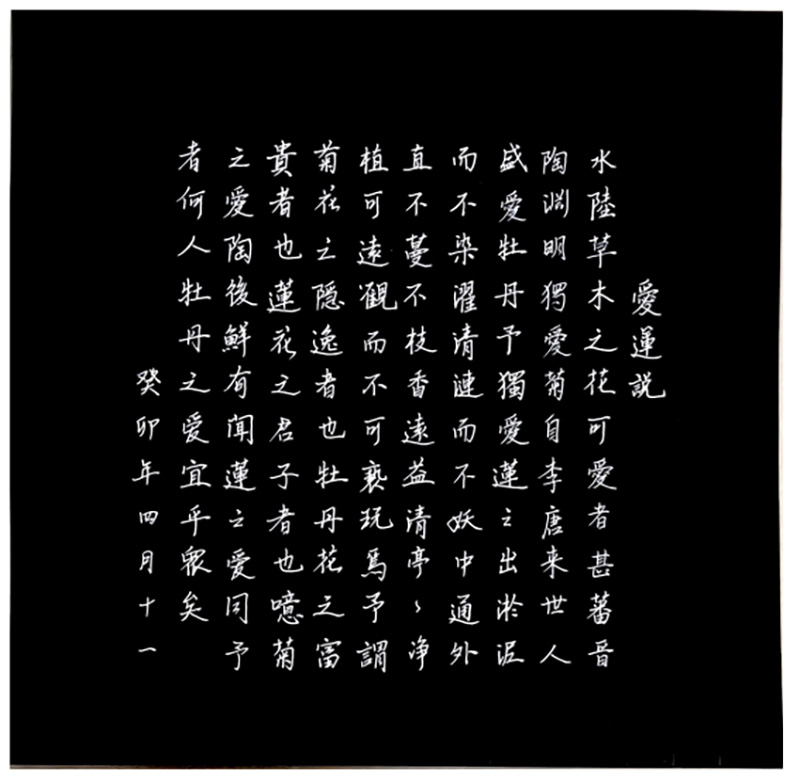 愛蓮説
水陸草木之花可愛者甚蕃晋
陶淵明獨愛菊自李唐来世人
盛愛牡丹予獨愛蓮之出淤泥
而不染濯清漣而不妖中通外
直不蔓不枝香遠益清亭〻净
植可遠觀而不可褻玩焉予謂
菊花之隠逸者也牡丹花之富
貴者也蓮花之君子者也噫菊
之愛陶後鮮有聞蓮之愛同予
者何人牡丹之愛宜乎衆矣
癸卯年四月十一